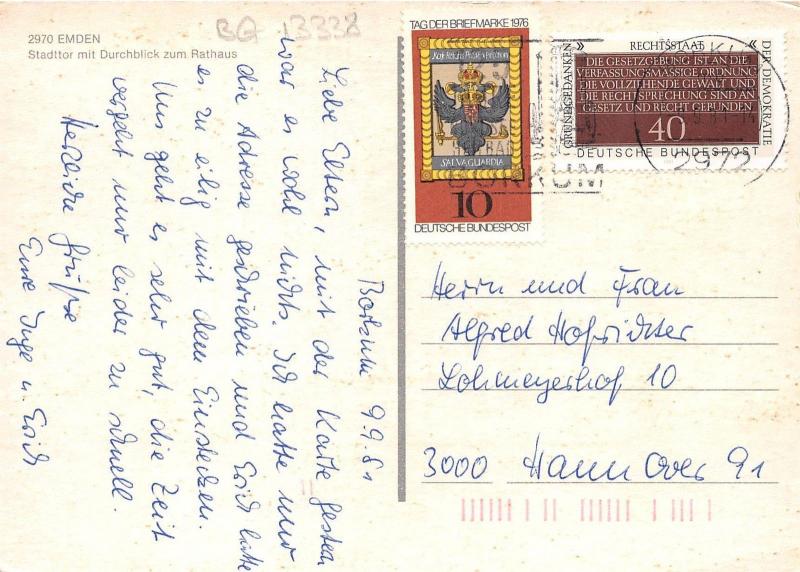 2970 EMDEN
Stadttor mit Durchblick zum Rathaus
BQ 13338
TAG DER BRIEFMARKE 1976
SALVAGUARDIA
10
DEUTSCHE BUNDESPOST
GRUNDGEDANKEN
» RECHTSSTAAT «
DER DEMOKRATIE
DIE GESETZGEBUNG IST AN DIE
VERFASSUNGSMÄSSIGE ORDNUNG
DIE VOLLZIEHENDE GEWALT UND
DIE RECHTSPRECHUNG SIND AN
GESETZ UND RECHT GEBUNDEN
40
DEUTSCHE BUNDESPOST
BORKUM
2972
Borkum 9.9.81
Liebe Eltern, mit der Karte gestern
war es wohl nichts. Ich hatte nur
die Adresse geschrieben und Erich hatte
es zu eilig mit dem Einstecken.
Uns geht es sehr gut, die Zeit
vergeht nur leider zu schnell.
Herzliche Grüße
Eure Inge u. Erich
Herrn und Frau
Alfred Hofrichter
Lohmeyerhof 10
3000 Hannover 91